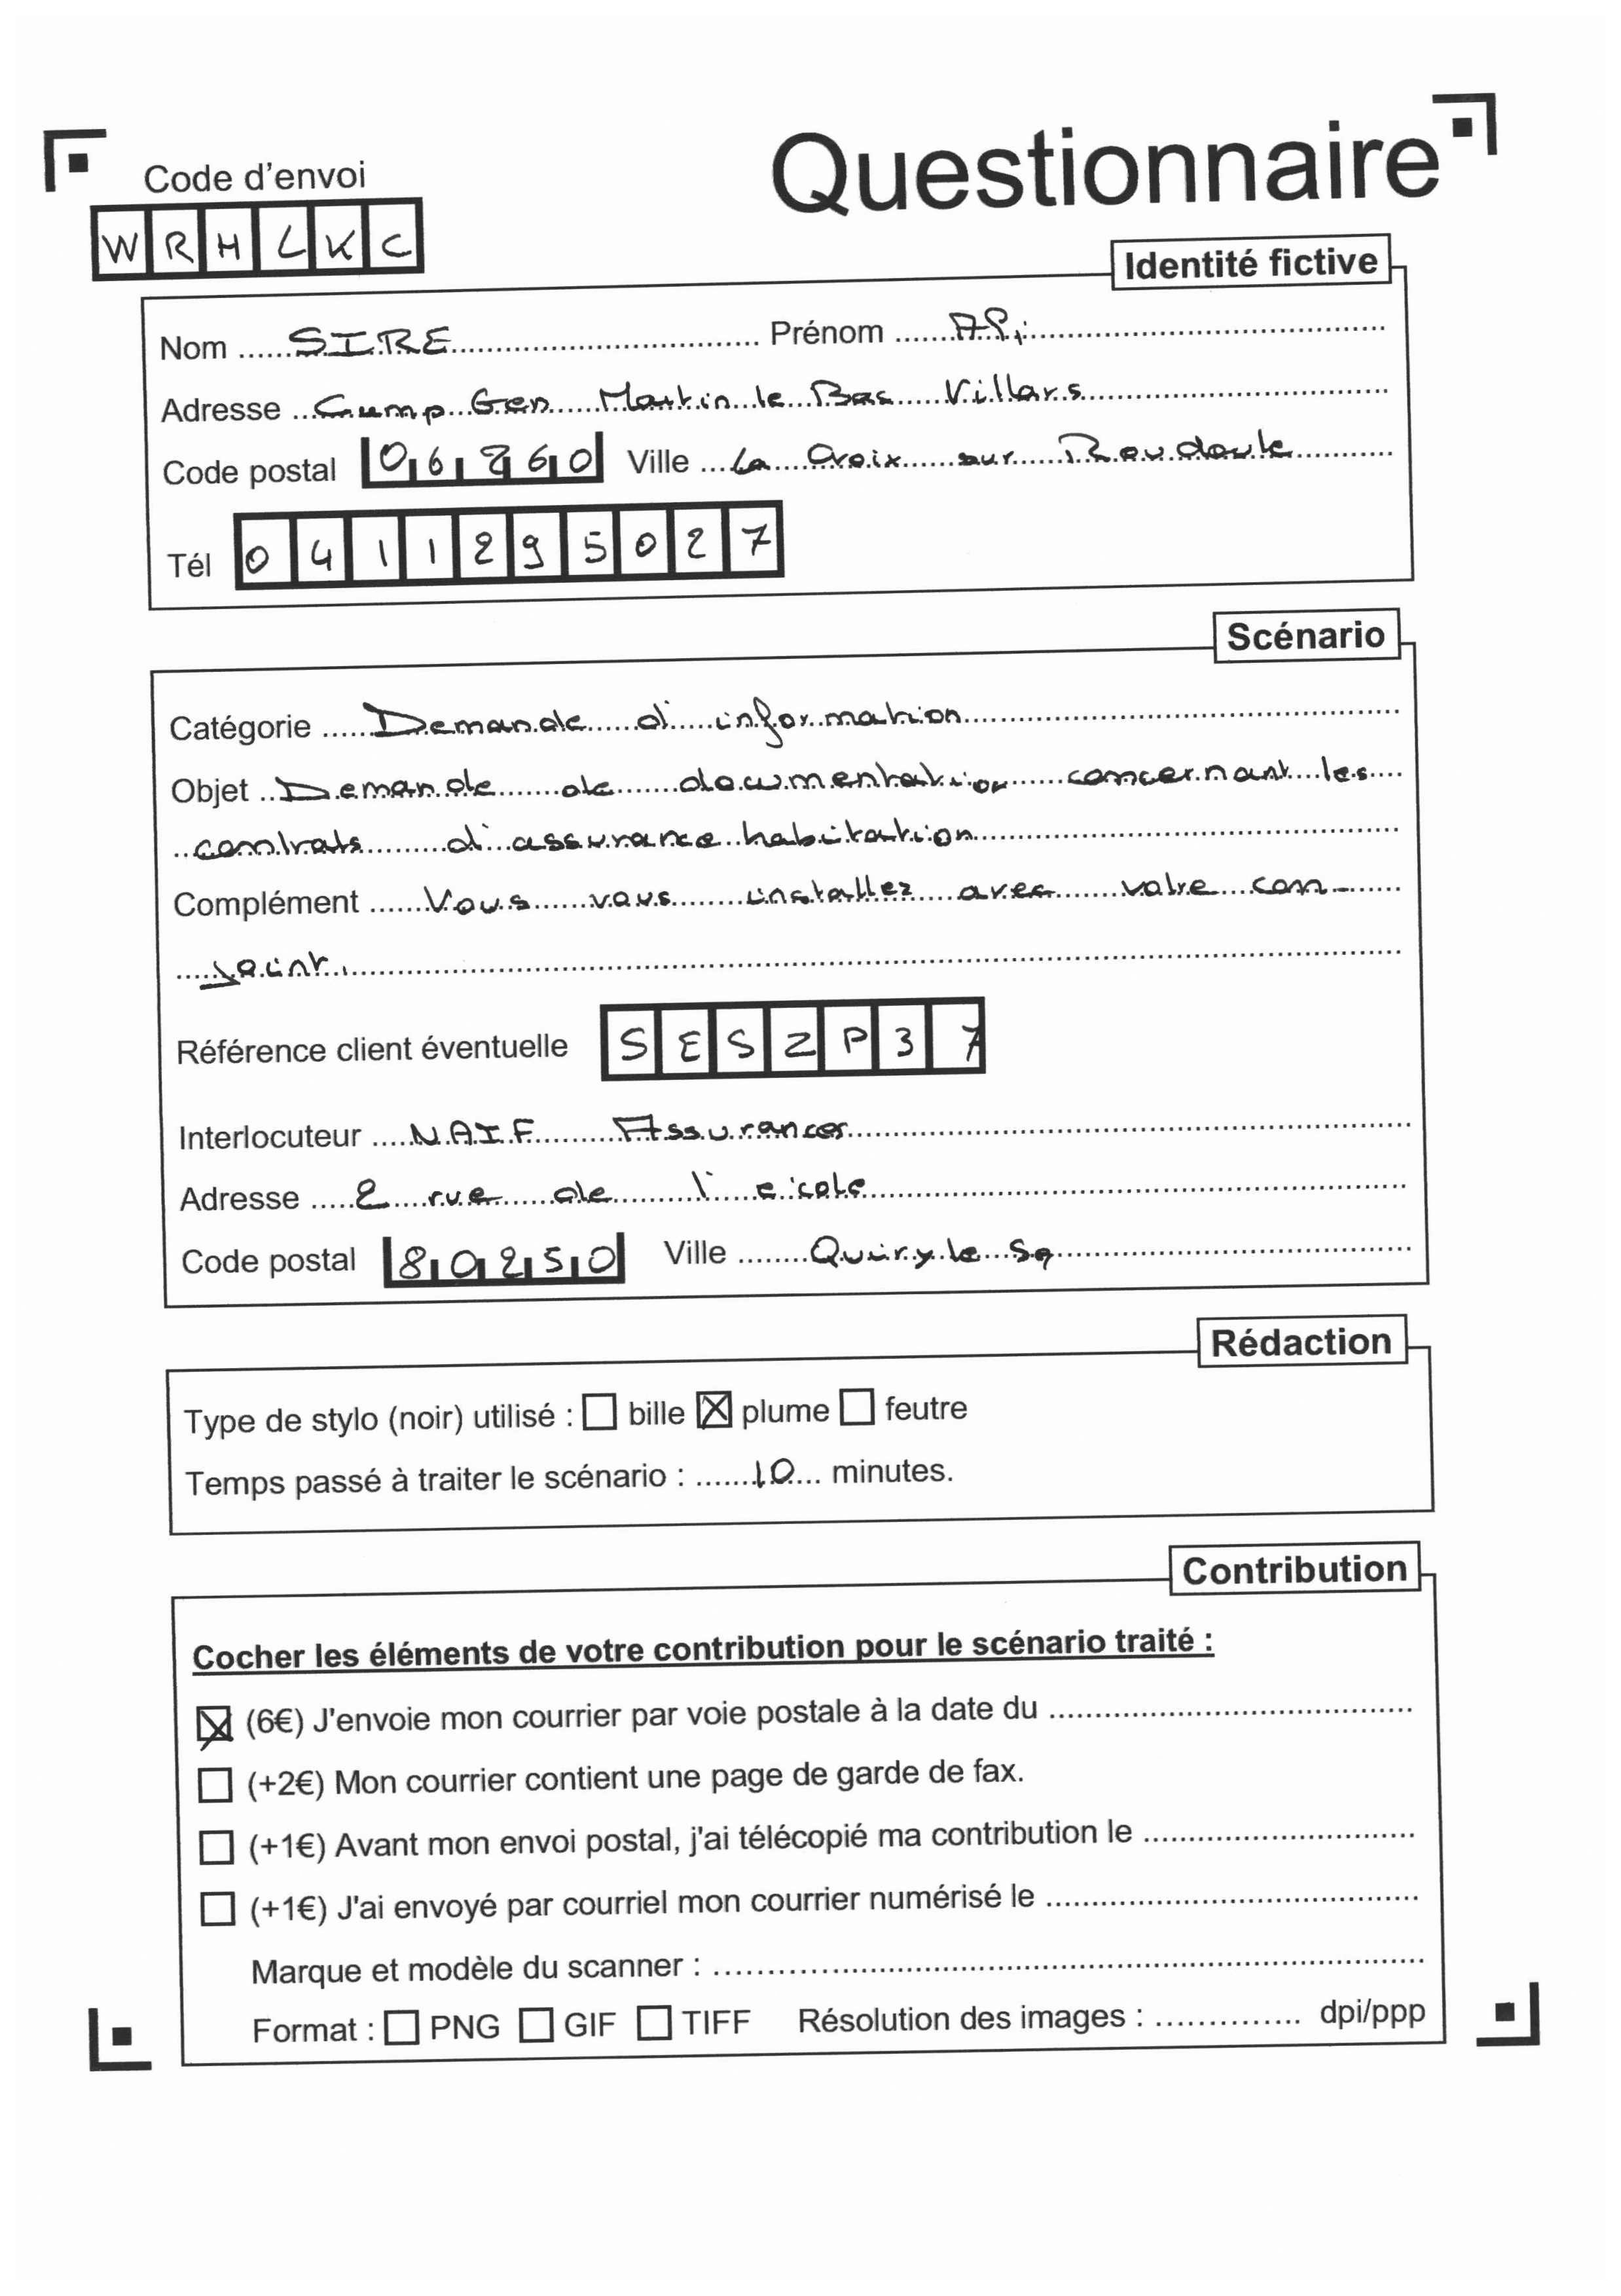 Questionnaire
Code d'envoi
WRHLKC
Identité fictive
Nom SIRE Prénom
Adresse Gen Martin le Bas Villars
Code postal 06260 Ville La Croix sur Roudoule
Tél 0411295027
Scénario
Catégorie Demande d'information
Objet Demande de documentation concernant les
contrats d'assurance habitation
Complément Vous vous installez avec votre con-
joint.
Référence client éventuelle SESZP37
Interlocuteur NAIF Assurances
Adresse 2 rue de l'école
Code postal 80250 Ville Quiry le Sq
Rédaction
Type de stylo (noir) utilisé : bille plume feutre
Temps passé à traiter le scénario : 10 minutes.
Contribution
Cocher les éléments de votre contribution pour le scénario traité :
(6€) J'envoie mon courrier par voie postale à la date du
(+2€) Mon courrier contient une page de garde de fax.
(+1€) Avant mon envoi postal, j'ai télécopié ma contribution le
(+1€) J'ai envoyé par courriel mon courrier numérisé le
Marque et modèle du scanner :
Format : PNG GIF TIFF Résolution des images : dpi/ppp